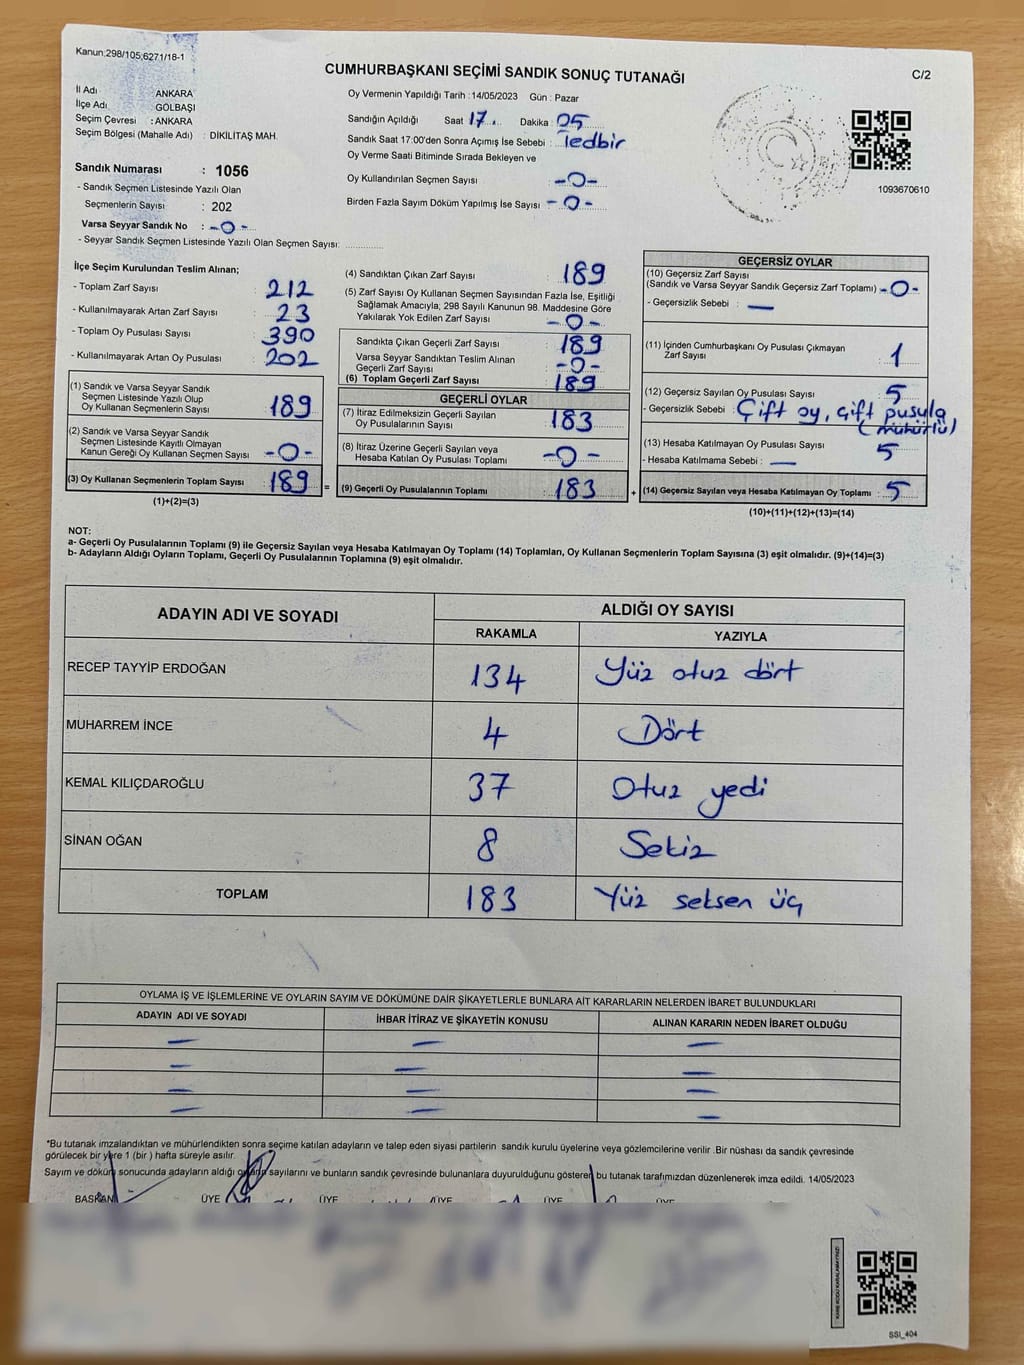 Kanun:298/105,6271/18-1
CUMHURBAŞKANI SEÇİMİ SANDIK SONUÇ TUTANAĞI
C/2
İl Adı ANKARA
İlçe Adı GÖLBAŞI
Seçim Çevresi : ANKARA
Seçim Bölgesi (Mahalle Adı) : DİKİLİTAŞ MAH.
Sandık Numarası : 1056
- Sandık Seçmen Listesinde Yazılı Olan
Seçmenlerin Sayısı : 202
Varsa Seyyar Sandık No : -0-
- Seyyar Sandık Seçmen Listesinde Yazılı Olan Seçmen Sayısı: ..............
Oy Vermenin Yapıldığı Tarih :14/05/2023 Gün : Pazar
Sandığın Açıldığı Saat 17. Dakika : 05
Sandık Saat 17:00'den Sonra Açımış İse Sebebi : Tedbir
Oy Verme Saati Bitiminde Sırada Bekleyen ve
Oy Kullandırılan Seçmen Sayısı -0-
Birden Fazla Sayım Döküm Yapılmış İse Sayısı -0-
1093670610
İlçe Seçim Kurulundan Teslim Alınan;
- Toplam Zarf Sayısı : 212
- Kullanılmayarak Artan Zarf Sayısı : 23
- Toplam Oy Pusulası Sayısı : 390
- Kullanılmayarak Artan Oy Pusulası : 202
(1) Sandık ve Varsa Seyyar Sandık
Seçmen Listesinde Yazılı Olup
Oy Kullanan Seçmenlerin Sayısı : 189
(2) Sandık ve Varsa Seyyar Sandık
Seçmen Listesinde Kayıtlı Olmayan
Kanun Gereği Oy Kullanan Seçmen Sayısı -0-
(3) Oy Kullanan Seçmenlerin Toplam Sayısı : 189 =
(1)+(2)=(3)
(4) Sandıktan Çıkan Zarf Sayısı : 189
(5) Zarf Sayısı Oy Kullanan Seçmen Sayısından Fazla İse, Eşitliği
Sağlamak Amacıyla, 298 Sayılı Kanunun 98. Maddesine Göre
Yakılarak Yok Edilen Zarf Sayısı -0-
Sandıkta Çıkan Geçerli Zarf Sayısı : 189
Varsa Seyyar Sandıktan Teslim Alınan
Geçerli Zarf Sayısı -0-
(6) Toplam Geçerli Zarf Sayısı : 189
GEÇERLİ OYLAR
(7) İtiraz Edilmeksizin Geçerli Sayılan
Oy Pusulalarının Sayısı : 183
(8) İtiraz Üzerine Geçerli Sayılan veya
Hesaba Katılan Oy Pusulası Toplamı -0-
(9) Geçerli Oy Pusulalarının Toplamı : 183 +
GEÇERSİZ OYLAR
(10) Geçersiz Zarf Sayısı
(Sandık ve Varsa Seyyar Sandık Geçersiz Zarf Toplamı) -0-
- Geçersizlik Sebebi : —
(11) İçinden Cumhurbaşkanı Oy Pusulası Çıkmayan
Zarf Sayısı : 1
(12) Geçersiz Sayılan Oy Pusulası Sayısı : 5
- Geçersizlik Sebebi : Çift oy, çift pusula
(mühürlü)
(13) Hesaba Katılmayan Oy Pusulası Sayısı 5
- Hesaba Katılmama Sebebi : —
(14) Geçersiz Sayılan veya Hesaba Katılmayan Oy Toplamı : 5
(10)+(11)+(12)+(13)=(14)
NOT:
a- Geçerli Oy Pusulalarının Toplamı (9) ile Geçersiz Sayılan veya Hesaba Katılmayan Oy Toplamı (14) Toplamları, Oy Kullanan Seçmenlerin Toplam Sayısına (3) eşit olmalıdır. (9)+(14)=(3)
b- Adayların Aldığı Oyların Toplamı, Geçerli Oy Pusulalarının Toplamına (9) eşit olmalıdır.
ADAYIN ADI VE SOYADI ALDIĞI OY SAYISI
RAKAMLA YAZIYLA
RECEP TAYYİP ERDOĞAN 134 Yüz otuz dört
MUHARREM İNCE 4 Dört
KEMAL KILIÇDAROĞLU 37 Otuz yedi
SİNAN OĞAN 8 Sekiz
TOPLAM 183 Yüz seksen üç
OYLAMA İŞ VE İŞLEMLERİNE VE OYLARIN SAYIM VE DÖKÜMÜNE DAİR ŞİKAYETLERLE BUNLARA AİT KARARLARIN NELERDEN İBARET BULUNDUKLARI
ADAYIN ADI VE SOYADI İHBAR İTİRAZ VE ŞİKAYETİN KONUSU ALINAN KARARIN NEDEN İBARET OLDUĞU
— — —
— — —
— — —
— — —
*Bu tutanak imzalandıktan ve mühürlendikten sonra seçime katılan adayların ve talep eden siyasi partilerin sandık kurulu üyelerine veya gözlemcilerine verilir .Bir nüshası da sandık çevresinde
görülecek bir yere 1 (bir ) hafta süreyle asılır.
Sayım ve döküm sonucunda adayların aldığı oyların sayılarını ve bunların sandık çevresinde bulunanlara duyurulduğunu gösteren bu tutanak tarafımızdan düzenlenerek imza edildi. 14/05/2023
BAŞKAN ÜYE ÜYE ÜYE ÜYE ÜYE
SSİ_404